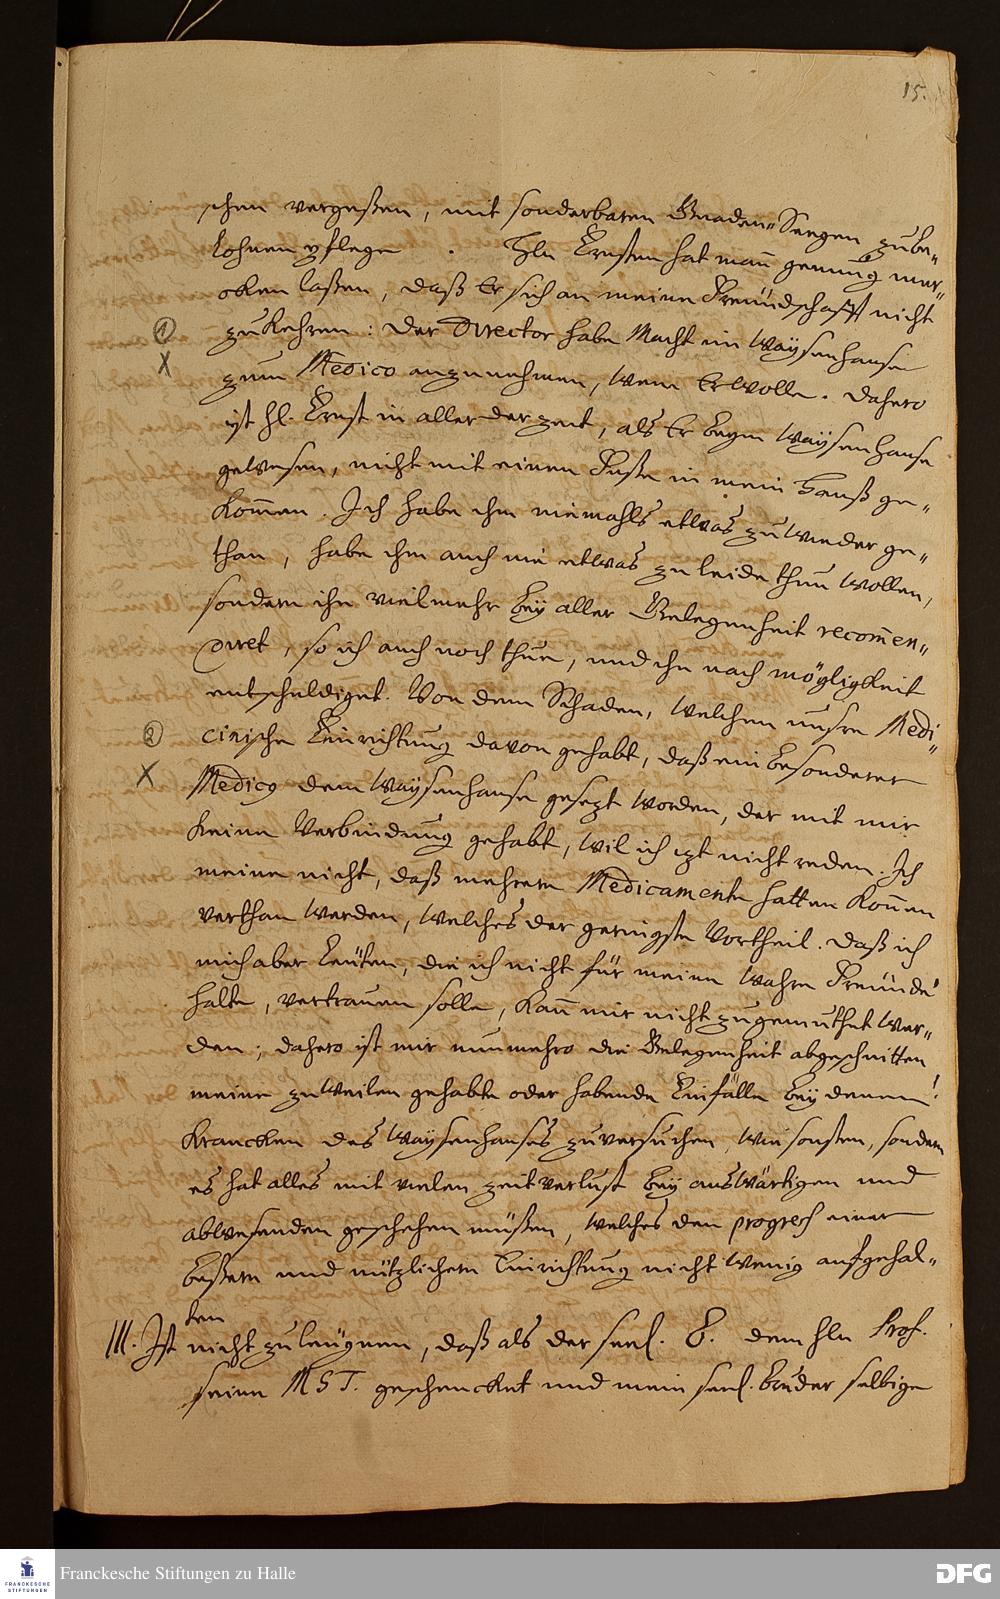 15.
schen vergeßen, mit sonderbaren Gnaden-Seegen zube-
lohnen pflege. Hln Ernsten hat man genung mer-
cken laßen, daß Er sich an meine Freündschafft nicht
① zukehren: der Director habe Macht im Waÿsenhause
X zum Medico anzunehmen, wem Er wolle. dahero
ist Hl. Ernst in aller der zeit, als Er beym Waÿsenhause
gewesen, nicht mit einem Fuße in mein Hauß ge-
kom̄en. Ich habe ihm niemahls etwas zuwieder ge-
than, habe ihm auch nie etwas zu leide thun wollen,
sondern ihn vielmehr beÿ aller Gelegenheit recom̄en-
diret, so ich auch noch thue, und ihn nach mögligkeit
entschuldiget. Von dem Schaden, welchen unsre Medi-
② cinische Einrichtung davon gehabt, daß ein besonderer
X Medicus dem Waÿsenhause gesezt worden, der mit mir
keine Verbindung gehabt, wil ich izt nicht reden. Ich
meine nicht, daß mehrere Medicamente hatten kön̄en
verthan werden, welches der geringste Vortheil. daß ich
mich aber Leüten, die ich nicht für meine wahre Freünde
halte, vertrauen solle, kan̄ mir nicht zugemuthet wer-
den; dahero ist mir nunmehro die Gelegenheit abgeschnitten
meine zuweilen gehabte oder habende Einfälle beÿ denen
Krancken des Waÿsenhauses zuversuchen, wie sonsten, sondern
es hat alles mit vielen zeitverlust beÿ auswärtigen und
abwesenden geschehen müßen, welches den progress einer
beßern und nützlichern Einrichtung nicht wenig aufgehal-
ten
III. Ist nicht zuleügnen, daß als der seel. B. dem Hln Prof.
seine MST. geschencket und mein seel. Bruder selbige
Franckesche Stiftungen zu Halle
FRANCKESCHE
STIFTUNGEN
DFG